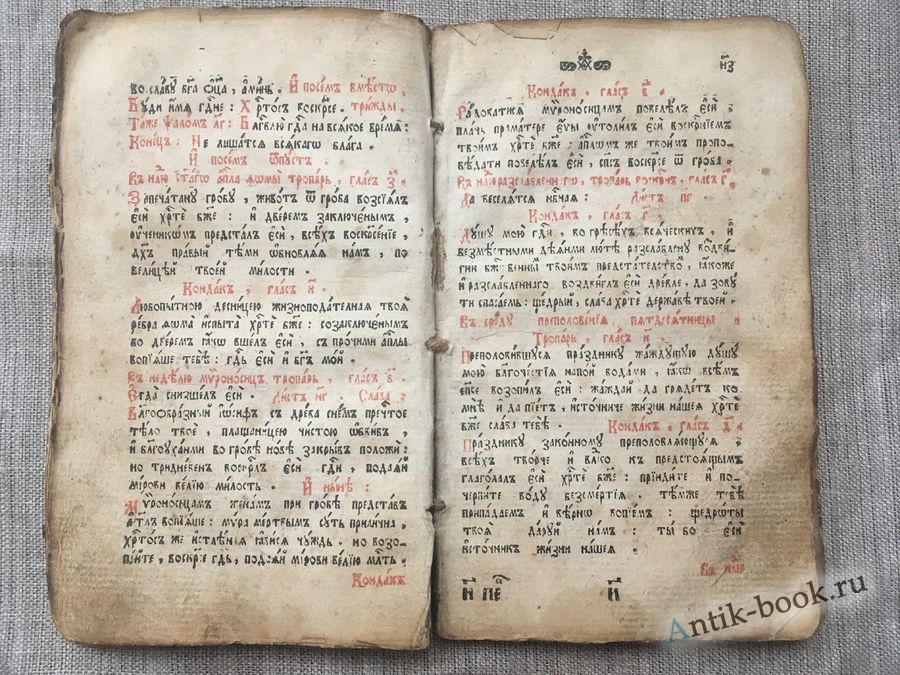 во славꙋ бг҃а ѻц҃а, аминь. И посемъ вмѣстѡ,
Бꙋди имѧ гдⷭ҇не: Хрⷭ҇тосъ воскрⷭ҇се. трижды.
Таже ѱаломъ, лг҃: Благⷭ҇влю гдⷭ҇а на всѧкое времѧ:
Конецъ: Не лишатсѧ всѧкагѡ блага.
И посемъ ѿпꙋстъ.
Въ нлⷣю ст҃агѡ апⷭ҇ла ѳѡмы тропарь, гласъ з҃.
Запечатанꙋ гробꙋ, животъ ѿ гроба возсїѧлъ
єси хрⷭ҇те бж҃е: и дверемъ заключенымъ,
ꙋченикѡмъ предсталъ єси, всѣхъ воскресенїе,
дх҃ъ правый тѣми ѡбновлѧѧ намъ, по
велицѣй твоей милости.
Кондакъ, гласъ и҃.
Любопытною десницею жизноподателнаѧ твоѧ
ребра ѳѡма испыта хрⷭ҇те бж҃е: созаключенымъ
бо дверемъ ꙗкѡ вшелъ єси, съ прочими апⷭ҇лы
вопїѧше тебѣ: гдⷭ҇ь єси и бг҃ъ мой.
Въ недѣлю мѵроносицъ тропарь, гласъ в҃.
Єгда снизшелъ єси. Листъ нг҃. Слава.
Благоѡбразный іѡсифъ съ древа снемъ пречⷭ҇тое
тѣло твое, плащаницею чистою ѡбвивъ,
и благоꙋханми во гробѣ новѣ закрывъ положи:
но триднебенъ воскрⷭ҇лъ єси гдⷭ҇и, подаѧй
мірови велїю милость. И нынѣ:
Мѵроносицамъ женамъ при гробѣ представъ
аг҃глъ вопїѧше: мѵра мертвымъ сꙋть прилична,
хрⷭ҇тосъ же истлѣнїѧ ꙗвисѧ чꙋждь. но возо-
пїйте, воскрⷭ҇се гдⷭ҇ь, подаѧй мірови велїю млⷭ҇ть
Кондакъ
н҃з
Кондакъ, гласъ в҃.
Радоватисѧ мѵроносицамъ повелѣлъ єси,
плачь праматере єѵы ꙋтолилъ єси воскрⷭ҇нїемъ
твоимъ хрⷭ҇те бж҃е: апⷭ҇лѡмъ же твоимъ пропо-
вѣдати повелѣлъ єси, сп҃съ воскрⷭ҇се ѿ гроба.
Въ нлⷣю разслабленнагѡ, тропарь воскрⷭ҇нъ, гласъ г҃.
Да веселѧтсѧ нбⷭ҇наѧ: Листъ пг҃.
Кондакъ, гласъ г҃.
Дꙋшꙋ мою гдⷭ҇и, во грѣсѣхъ всѧческихъ, и
безмѣстными дѣѧнми лютѣ разслабленꙋ воздви-
гни бжⷭ҇твеннымъ твоимъ предстателствомъ, ꙗкоже
и разслабленнаго воздвиглъ єси древле, да зовꙋ
ти спасаемь: щедрый, слава хрⷭ҇те державѣ твоей.
Въ средꙋ преполовенїѧ пѧтдесѧтницы и
Тропарь, гласъ и҃.
Преполовившꙋсѧ празднікꙋ жаждꙋщꙋю дꙋшꙋ
мою благочестїѧ напой водами, ꙗкѡ всѣмъ
сп҃се возопилъ єси: жаждай да грѧдетъ ко
мнѣ и да пїетъ, источниче жизни нашеѧ хрⷭ҇те
бж҃е слава тебѣ. Кондакъ, гласъ д҃.
Празднікꙋ законномꙋ преполовлѧющꙋсѧ,
всѣхъ творче и влⷣко къ предстоѧщымъ
глаголалъ єси хрⷭ҇те бж҃е: прїидите и по-
черпите водꙋ безсмертїѧ. тѣмже тебѣ
припадаемъ и вѣрнѡ вопїемъ: щедрѡты
твоѧ дарꙋй намъ: ты бо єси
источникъ жизни нашеѧ.
Въ нлⷣю
и҃
Antik-book.ru